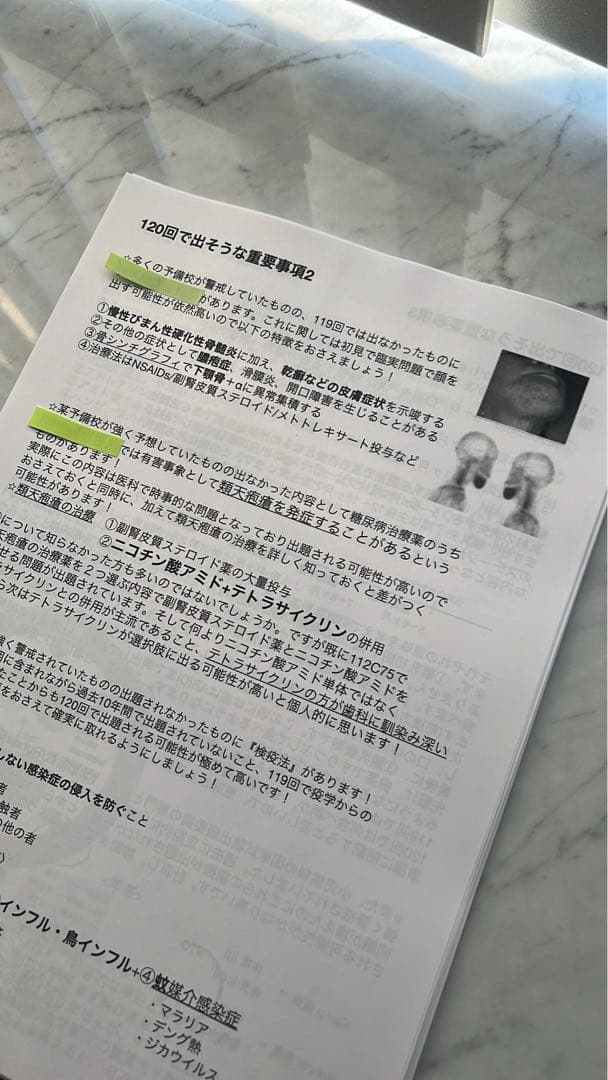 120回で出そうな重要事項2
☆多くの予備校が警戒していたものの、119回では出なかったものに
があります。これに関しては初見で臨実問題で顔を
出す可能性が依然高いので以下の特徴をおさえましょう!
①慢性びまん性硬化性骨髄炎に加え、乾癬などの皮膚症状を示唆する
②その他の症状として膿疱症、滑膜炎、開口障害を生じることがある
③骨シンチグラフィで下顎骨+αに異常集積する
④治療法はNSAIDs/副腎皮質ステロイド/メトトレキサート投与など
☆某予備校が強く予想していたものの出なかった内容として糖尿病治療薬のうち
では有害事象として類天疱瘡を発症することがあるという
ものがあります!
実際にこの内容は医科で時事的な問題となっており出題される可能性が高いので
おさえておくと同時に、加えて類天疱瘡の治療を詳しく知っておくと差がつく
可能性があります!
☆類天疱瘡の治療
①副腎皮質ステロイド薬の大量投与
②ニコチン酸アミド+テトラサイクリンの併用
について知らなかった方も多いのではないでしょうか。ですが既に112C75で
天疱瘡の治療薬を2つ選ぶ内容で副腎皮質ステロイド薬とニコチン酸アミドを
せる問題が出題されています。そして何よりニコチン酸アミド単体ではなく
サイクリンとの併用が主流であること、テトラサイクリンの方が歯科に馴染み深い
ら次はテトラサイクリンが選択肢に出る可能性が高いと個人的に思います!
強く警戒されていたものの出題されなかったものに『検疫法』があります!
に含まれながら過去10年間で出題されていないこと、119回で疫学からの
たことからも120回で出題される可能性が極めて高いです!
をおさえて確実に取れるようにしましょう!
しない感染症の侵入を防ぐこと
者
触者
の他の者
インフル・鳥インフル+④蚊媒介感染症
・マラリア
・デング熱
・ジカウイルス